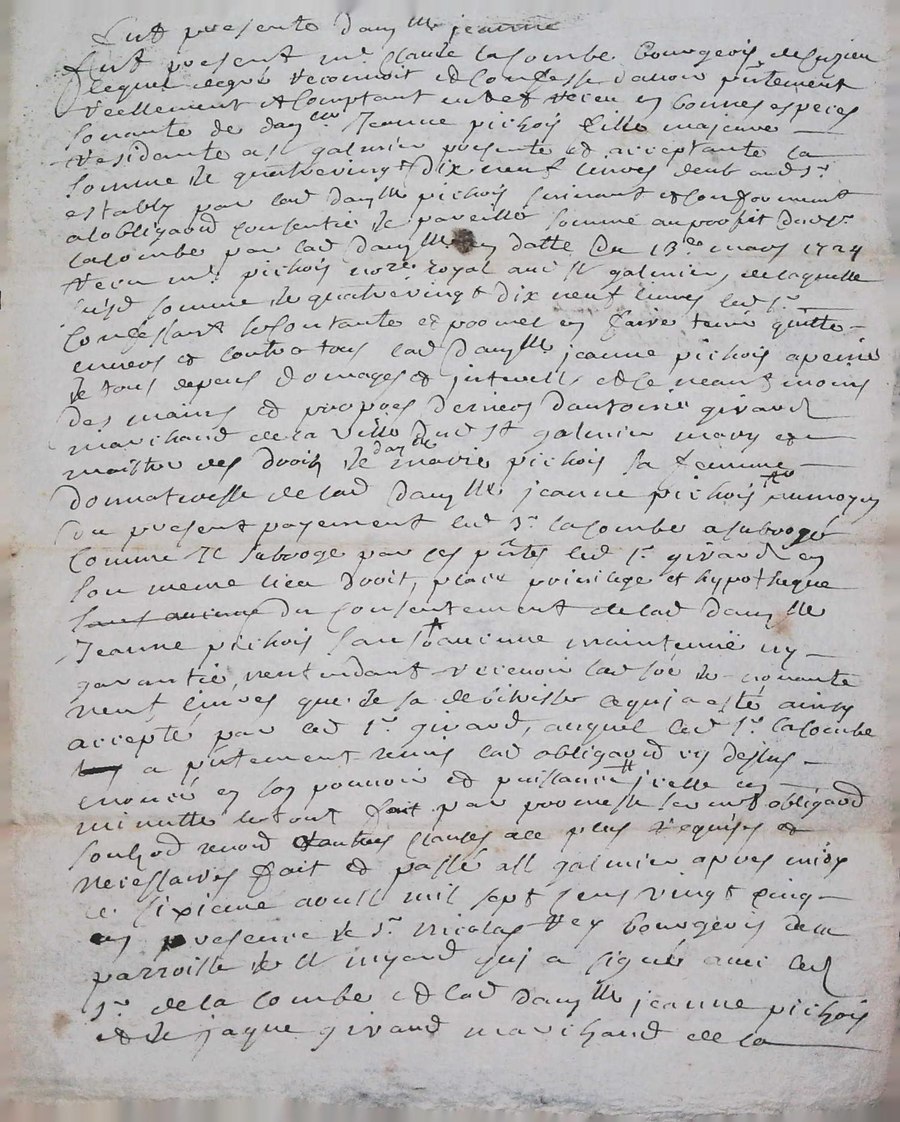 Fut presente dam.lle jeanne
Fut present m.r Claude lacombe Bourgeois de Cuzieu
lequel degré reconnoit et Confesse d'avoir p̄ntement
reellement et Comptant eu et receu en bonnes especes
sonante de dam.lle Jeanne pichois fille majeure
residante a St galmier presente et acceptante la
somme de quatrevingt dix neuf livres deub aud s.r
estably par lad dam.lle pichois suivant et Conformement
a lobligaõn Consentie de pareille somme au profit dud s.r
lacombe par lad dam.lle en datte du 13.e mars 1724
receu m.r pichois no.re royal aud St galmier, de laquelle
susd somme de quatrevingt dix neuf livres led s.r
Confessant se Contante et promet en faire tenir quitte
envers et contre tous lad dam.lle jeanne pichois a peine
de tous depens domages et interests et ce neantmoins
des mains et propres deniers d'antoine girard
marchand de la ville dud St galmier mary et
maistre des droits de dam.lle marie pichois sa femme
donnatresse de lad dam.lle jeanne pichois au moyen
du present payement led s.r lacombe a subrogé
Comme Il subroge par ces p̄ntes led s.r girard en
son meme lieu droit, place privilege et hypotheque
sans aucune du Consentement de lad dam.lle
Jeanne pichois sans aucune maintenüe ny
garantie, nentendant recevoir lad soe de nonante
neuf livres que de sa ce qui a esté ainsy
accepté par led s.r girard, auquel led s.r lacombe
a p̄ntement remis lad obligaõn cy dessus
enoncé en son pouvoir et puissance icelle en
minutte le tout fait par promesse serm.t obligaõn
soubzõn renoõn et autres clauses a ce plus requises et
necessaires fait et passé a St galmier apres midy
ce sixieme avril mil sept cens vingt cinq
en presence de s.r nicolas rey bourgeois de la
parroisse de St myard qui a signé avec led
s.r de la Combe et lad dam.lle jeanne pichois
et de jaque girard marchand de la